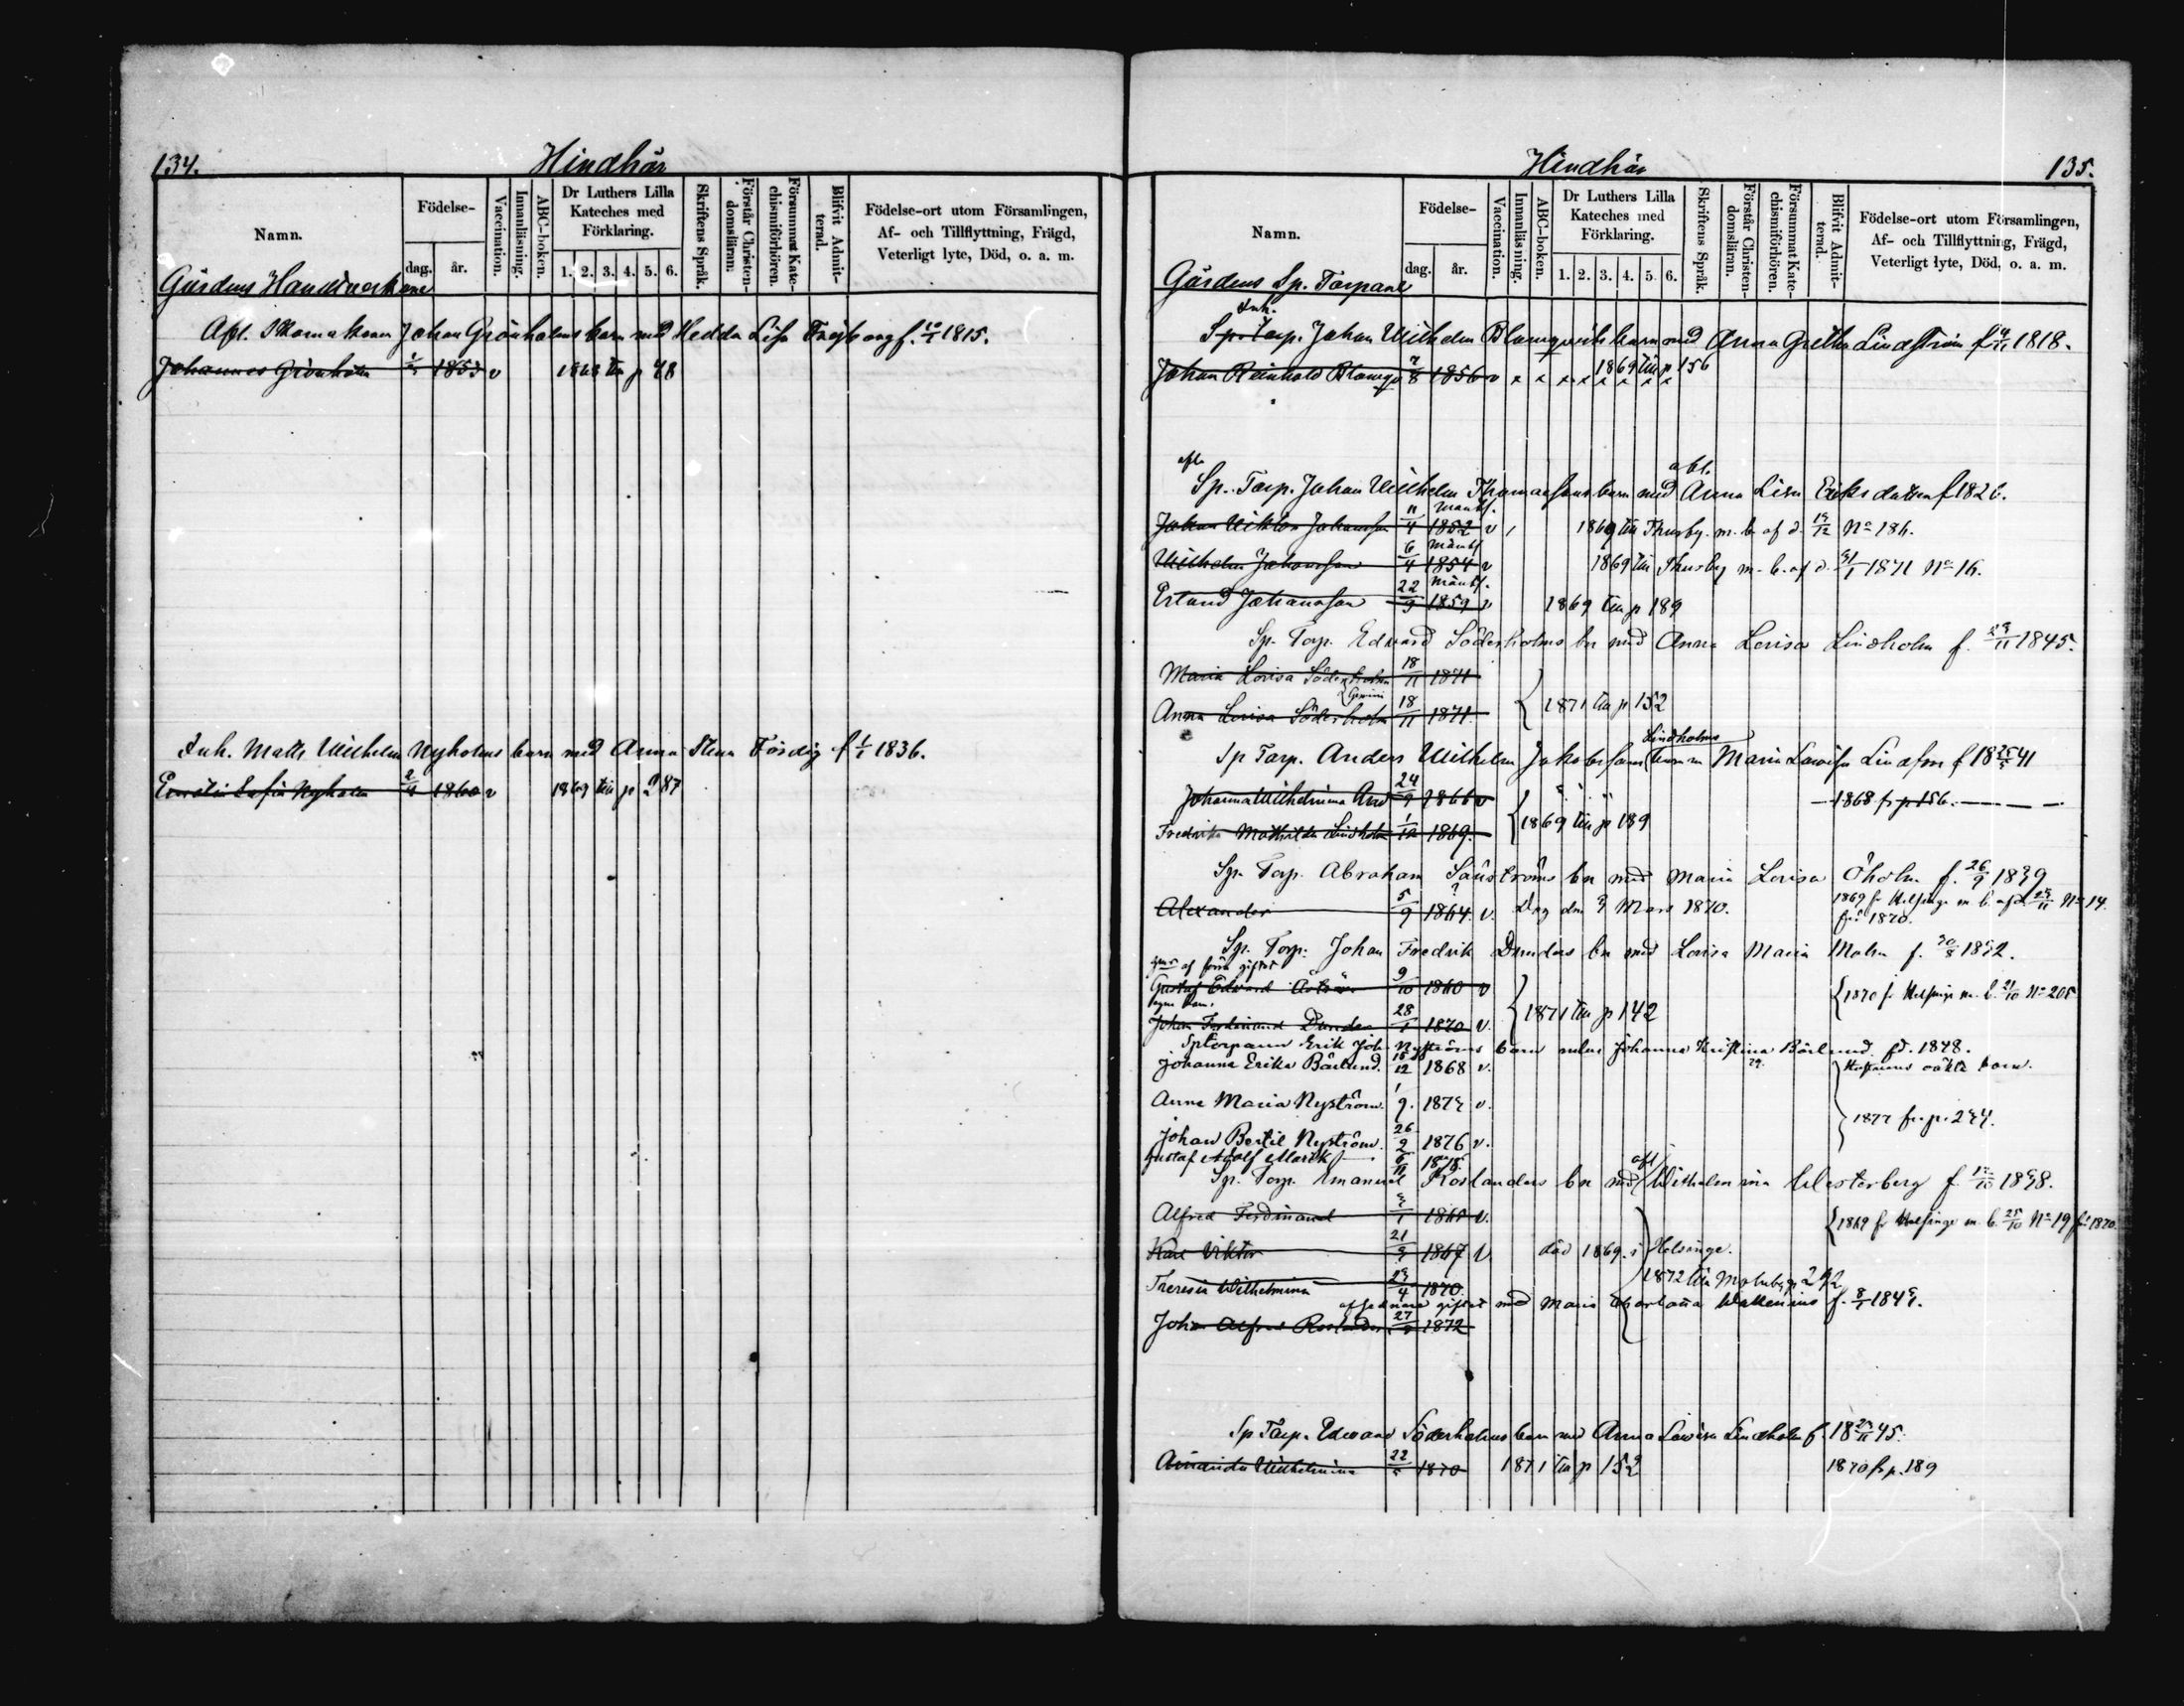 134.
Hindhår
Namn.
Födelse-
dag. år.
Vaccination.
Innanläsning.
ABC-boken.
Dr Luthers Lilla Kateches med Förklaring.
1. 2. 3. 4. 5. 6.
Skriftens Språk.
Förstår Christendomsläran.
Försummat Katechismiförhören.
Blifvit Admitterad.
Födelse-ort utom Församlingen,
Af- och Tillflyttning, Frägd,
Veterligt lyte, Död, o. a. m.
Gårdens Handtverkare
Afl. Skomakaren Johan Grönholms barn med Hedda Lisa 1815.
Johannes Grönholm 1853 v 1868 till p 48
Inh. Matts Wilhelm Nyholms barn med Anna Stena Fördig f 1/1 1836.
Sofia Nyholm 1860 v 1869 till p 287
Hindhår
135.
Namn.
Födelse-
dag. år.
Vaccination.
Innanläsning.
ABC-boken.
Dr Luthers Lilla Kateches med Förklaring.
1. 2. 3. 4. 5. 6.
Skriftens Språk.
Förstår Christendomsläran.
Försummat Katechismiförhören.
Blifvit Admitterad.
Födelse-ort utom Församlingen,
Af- och Tillflyttning, Frägd,
Veterligt lyte, Död, o. a. m.
Gårdens Sp. Torpare
Inh.
Sp. Torp. Johan Wilhelm Blomqvists barn med Anna Gretha Lindström f 1818.
Johan Reinhold Blomqv 7/8 1856 v 1869 till p 156
afl. afl.
Sp. Torp. Johan Wilhelm Thomassons barn med Anna Lisa Eriksdotter f 1826.
Johan Viktor Johansson 11/4 1852 v 1869 till Thusby m. b. af d. 19/12 No 186.
Wilhelm Johansson 6/4 1854 v 1869 till Thusby m. b. af d. 31/1 1871 No 16.
Erland Johansson 22/9 1859 v 1869 till p 189
Sp. Torp. Edward Söderholms bn med Anna Lovisa Lindholm f. 1845.
Maria Lovisa Söderholm 18/11 1871
Gemini
Anna Lovisa Söderholm 18/11 1871. 1871 till p 152
Lindholms
Sp Torp. Anders Wilhelm Jakobssons barn m Maria Lovisa f 18 41
Johanna Wilhelmina And 24/9 1866 v 1868 fr p 156.
Fredrika Mathilda Lindholm 1/12 1869. 1869 till p 189
Sp. Torp. Abraham Sånströms bn med Maria Lovisa Öholm f. 26/9 1839
Alexander 5/9 1864. v. Dog den 3 Mars 1870. 1869 fr Helsinge m. b. af d. No 14. 1870.
Sp. Torp: Johan Fredrik Dunders bn med Lovisa Maria Malm f. 1832.
af förra giftet
Gustaf Edward 9/10 1860 v 1870 fr Helsinge m. b. 21/10 No 205
Johan Ferdinand Dunder 28/1 1870 v. 1871 till p 142
Sptorparen Erik Joh. Nyströms barn Johanna Kristina Bärlund fd. 1848.
Johanna Erika Bärlund. 12 1868 v. Hustruns oäkta barn.
Anna Maria Nyström. 1/9. 1873 v. 1877 fr. p. 234.
Johan Bertil Nyström. 26/2 1876 v.
Gustaf Adolf 6/11 1878.
Sp. Torp. Emanuel Roslanders bn med afl Wilhelmina Westerberg f. 1838.
Alfred Ferdinand 3/1 1865 v. 1869 fr Helsinge m. b. 25/10 No 19 1870.
Karl Viktor 21/3 1867 v. död 1869. i Helsinge.
Theresia Wilhelmina 1870. 1872 till
giftet med Maria Charlotta Wallenius f. 8/1
Johan Alfred Roslander 27 1872
Sp. Torp. Edward Söderholms barn med Anna Lovisa Lindholm f. 18 45.
Amanda Wilhelmina 22 1870 1871 till p 152 1870 fr p. 189